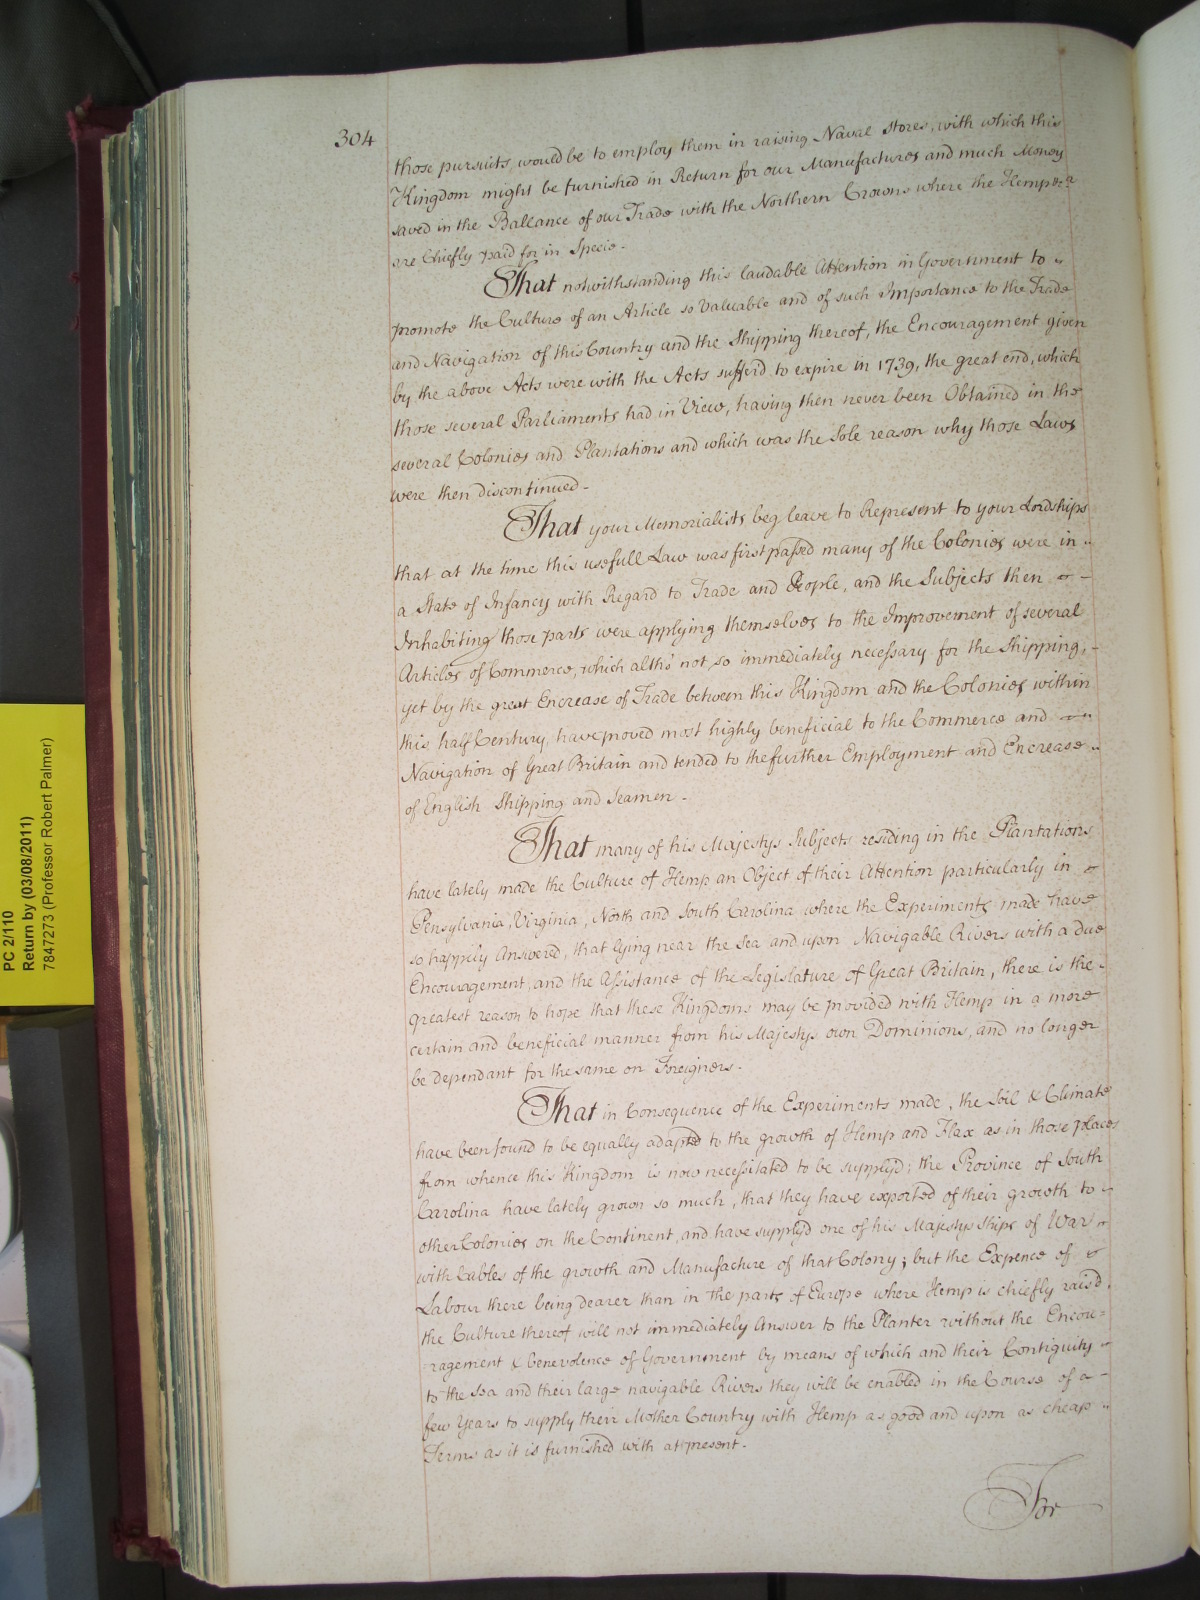 304
those pursuits, would be to employ them in raising Naval Stores, with which this
Kingdom might be furnished in Return for our Manufactures and much Money
saved in the Ballance of our Trade with the Northern Crowns where the Hemp &ca
are Chiefly paid for in Specie.
That notwithstanding this laudable Attention in Government to
promote the Culture of an Article so Valuable and of such Importance to the Trade
and Navigation of this Country and the Shipping thereof, the Encouragement given
by the above Acts were with the Acts sufferd to expire in 1739, the great end, which
those several Parliaments had in View, having then never been Obtained in the
several Colonies and Plantations and which was the Sole reason why those Laws
were then discontinued.
That your Memorialists beg leave to Represent to your Lordships
that at the time this usefull Law was first passed many of the Colonies were in
a State of Infancy with Regard to Trade and People, and the Subjects then
Inhabiting those parts were applying themselves to the Improvement of several
Articles of Commerce, which altho' not so immediately necessary for the Shipping,
yet by the great Encrease of Trade between this Kingdom and the Colonies within
this half Century, have proved most highly beneficial to the Commerce and
Navigation of Great Britain and tended to the further Employment and Encrease
of English Shipping and Seamen.
That many of his Majestys Subjects residing in the Plantations
have lately made the Culture of Hemp an Object of their Attention particularly in
Pensylvania, Virginia, North and South Carolina where the Experiments made have
so happily Answered, that lying near the Sea and upon Navigable Rivers with a due
Encouragement, and the Assistance of the Legislature of Great Britain, there is the
greatest reason to hope that these Kingdoms may be provided with Hemp in a more
certain and beneficial manner from his Majestys own Dominions, and no longer
be dependant for the same on Foreigners.
That in Consequence of the Experiments made, the Soil & Climate
have been found to be equally adapted to the growth of Hemp and Flax as in those places
from whence this Kingdom is now necessitated to be supplyd; the Province of South
Carolina have lately grown so much, that they have exported of their growth to
other Colonies on the Continent, and have supplyd one of his Majestys Ships of War
with Cables of the growth and Manufacture of that Colony; but the Expence of
Labour there being dearer than in the parts of Europe where Hemp is chiefly raisd,
the Culture thereof will not immediately Answer to the Planter without the Encou=
ragement & benevolence of Government by means of which and their Contiguity
to the Sea and their large navigable Rivers they will be enabled in the Course of a
few Years to supply their Mother Country with Hemp as good and upon as cheap
Terms as it is furnished with at present.
For
PC 2/110
Return by (03/08/2011)
7847273 (Professor Robert Palmer)